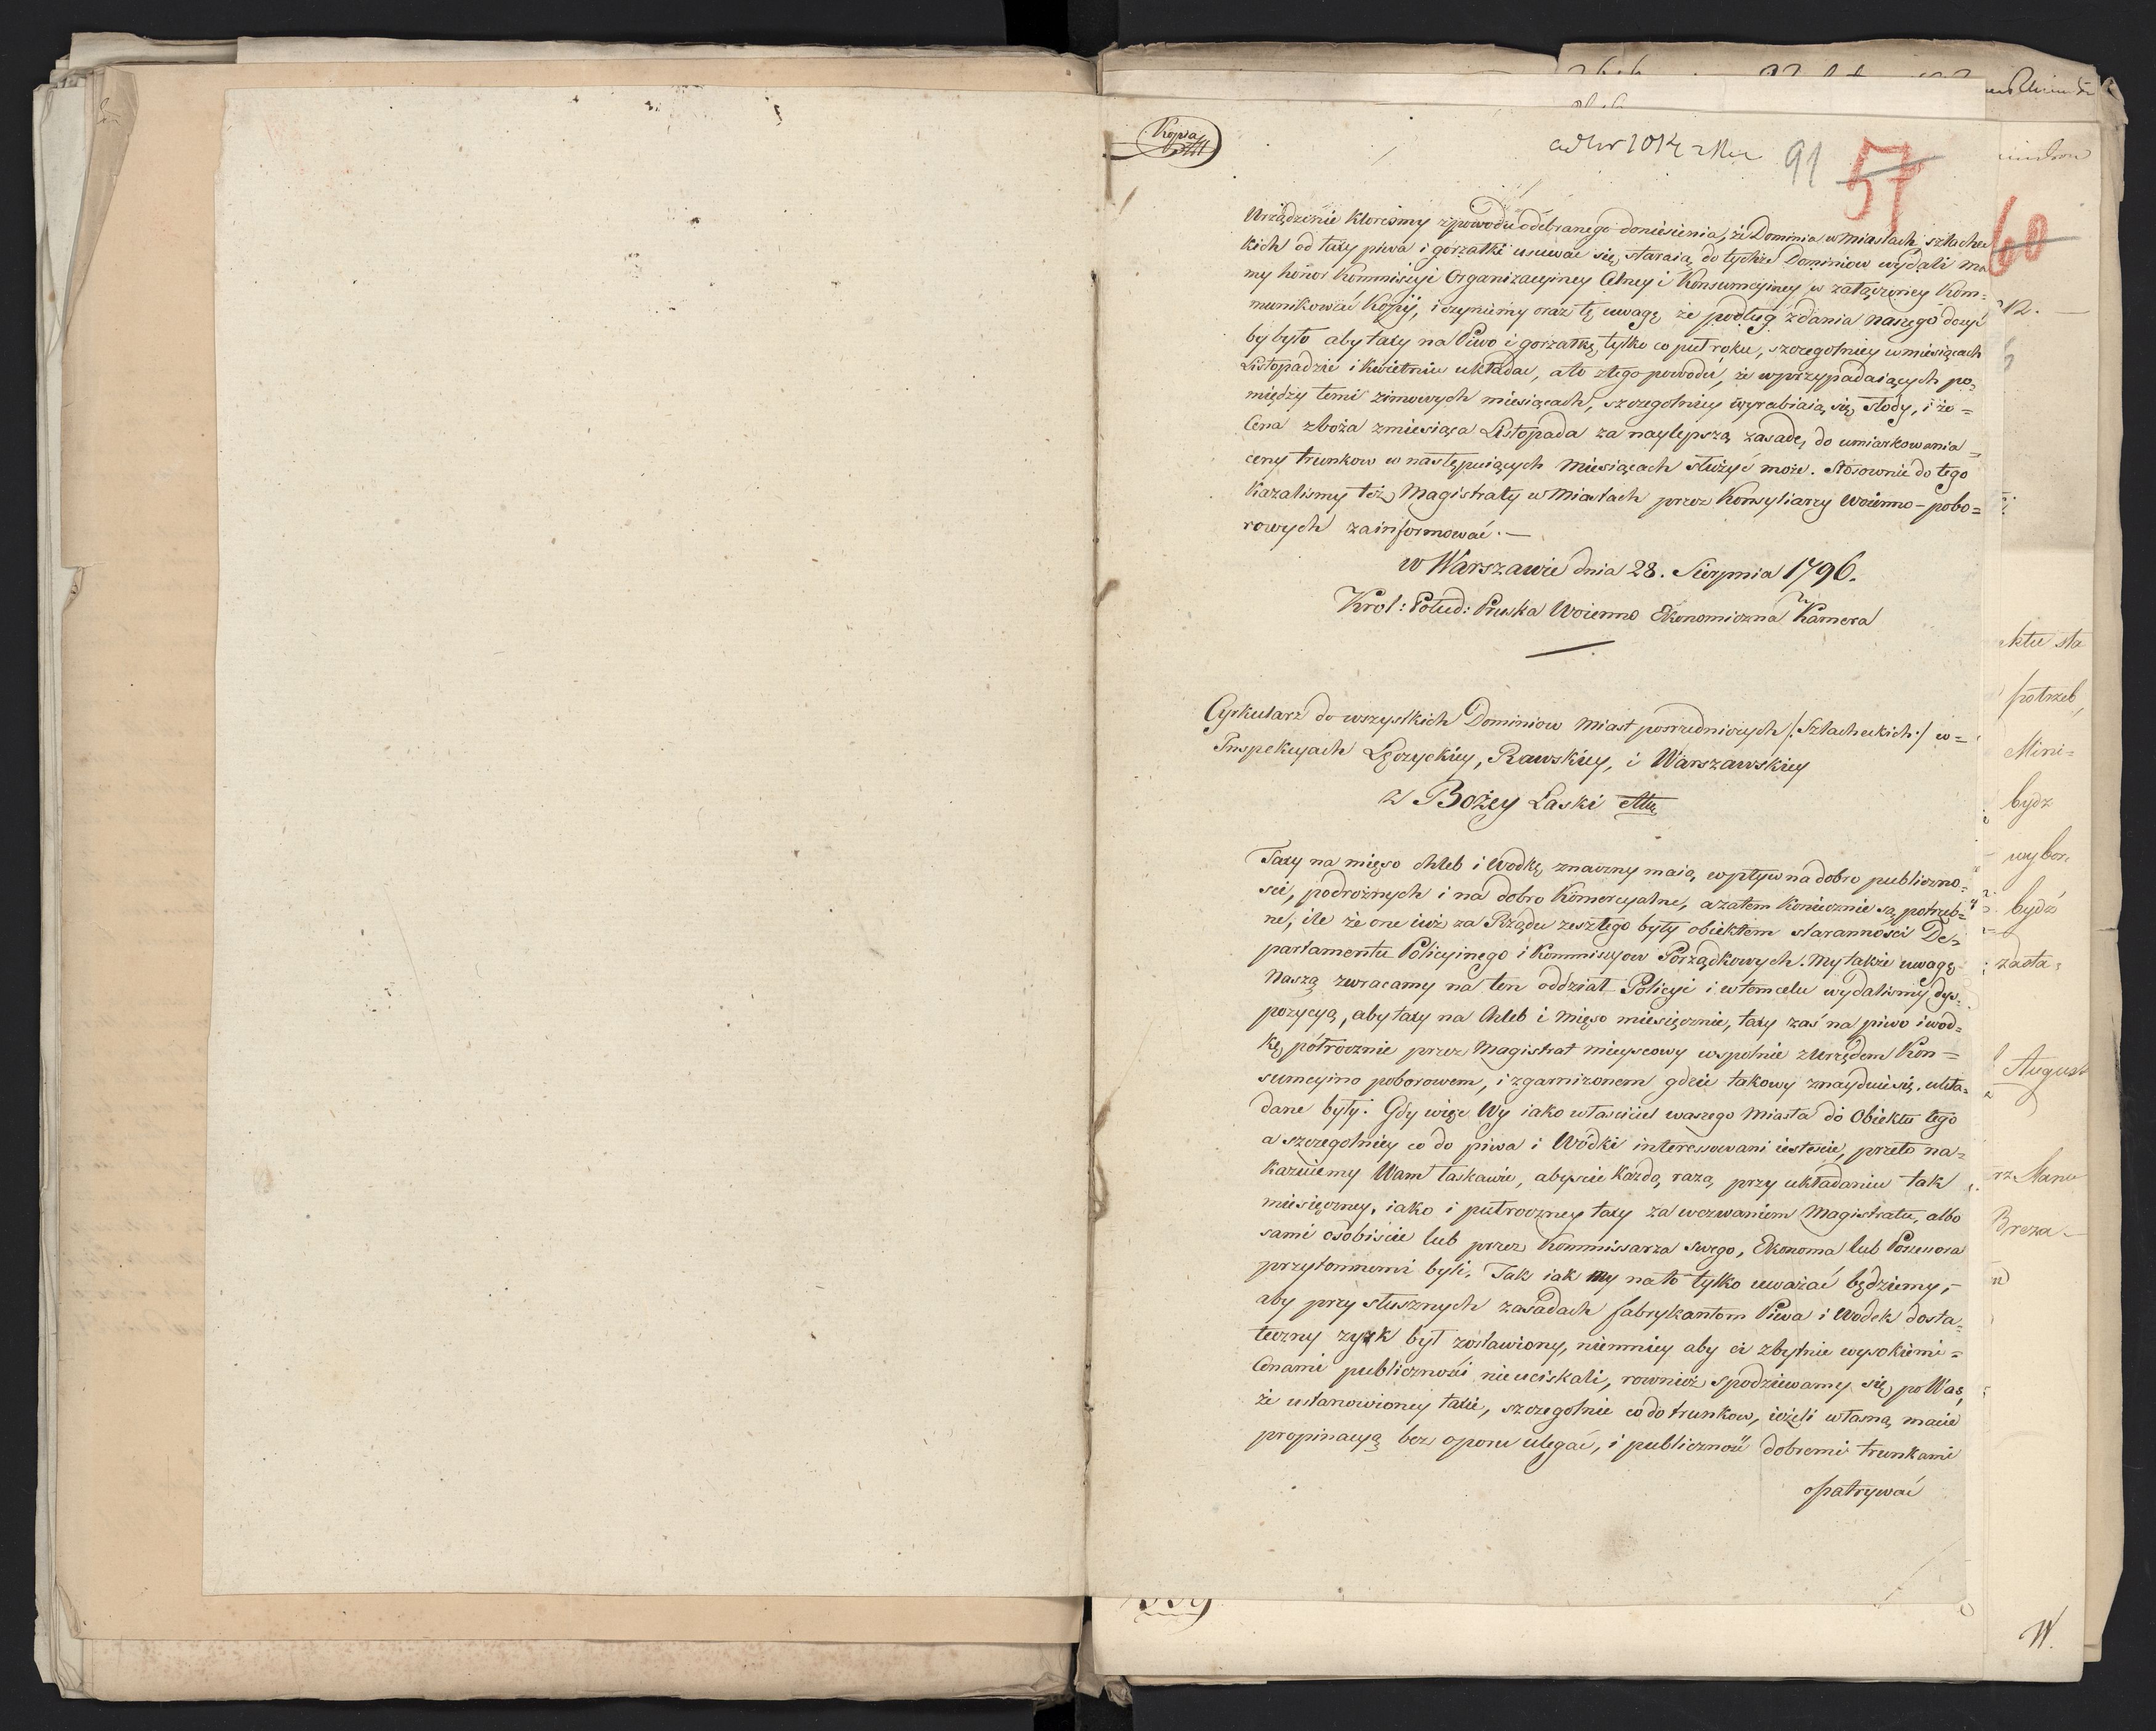 Kopia
91 57
60
Urządzenie ktoresmy z powodu odebranego doniesienia, że Dominia w Miastach szlachec
kich od taxy piwa i gorzałki usuwać się staraią, do tychże Dominiow wydali ma
my honor Kommissyi Organizacyiney Celney i Konsumcyiney w załączoney Kom=
munikować Kopij, i czyniemy oraz tę uwagę że podług zdania naszego dosyć
by było aby taxy na Piwo i gorzałkę tylko co puł roku, szczegolniey w miesiącach
Listopadzie i Kwietniu układać, a to z tego powodu, że w przypadaiących po=
między temi zimowych miesiącach, szczegolniey wyrabiaią się słody, i że =
Cena zboża z miesiąca Listopada za naylepszą zasadę, do umiarkowania =
ceny trunkow w następuiących Miesiącach służyć może. Stosownie do tego
kazalismy też Magistraty w Miastach przez Konsyliarzy Woienno-pobo=
rowych zainformować. —
w Warszawie dnia 28. Sierpnia 1796.
Krol: Połud: Pruska Woienno Ekonomiczna Kamera
Cyrkularz do wszystkich Dominiow Miast posrzedniczych /: Szlacheckich :/ w =
Inspekcyach Łęczyckiey, Rawskiey, i Warszawskiey
z Bożey Łaski
Taxy na mięso chleb i Wodkę znaczny maią wpływ na dobro publiczno=
sci, podrożnych i na dobro Komercyalne, a zatem koniecznie są potrzeb=
ne, ile że one iuż za Rządu zeszłego były obiektem staranności De=
partamentu Policyinego i Kommissyow Porządkowych. My także uwagę
Naszą zwracamy na ten oddział Policyi i w tem celu wydalismy dys=
pozycyą, aby taxy na Chleb i Mięso miesięcznie, taxy zaś na piwo i wod=
kę półrocznie przez Magistrat mieyscowy wspolnie z Urzędem Kon=
sumcyino poborowem, i z garnizonem gdzie takowy znayduie się, ukła=
dane były. Gdy więc Wy iako własciciel waszego Miasta do Obiektu tego
a szczegolniey co do piwa i Wódki interessowani iesteście, przeto na=
kazuiemy Wam łaskawie, abyscie każdą razą przy układaniu tak
miesięczney, iako i pułroczney taxy za wezwaniem Magistratu, albo
sami osobiscie lub przez Kommissarza swego, Ekonoma lub Possessora
przytomnemi byli. Tak iak my na to tylko uważać będziemy, -
aby przy słusznych zasadach fabrykantom Piwa i Wodek dosta=
teczny zysk był zostawiony, niemniey aby ci zbytnie wysokiemi =
Cenami publicznosci nie uciskali, rownież spodziewamy się po Was,
że ustanowioney taxie, szczegolnie co do trunkow, ieżeli własną macie
propinacyą bez oporu ulegać, i publiczność dobremi trunkami
opatrywać
ktu sta
potrzeb
Mini=
bydz
wybor
bydź
zasta=
August
Breza
W.